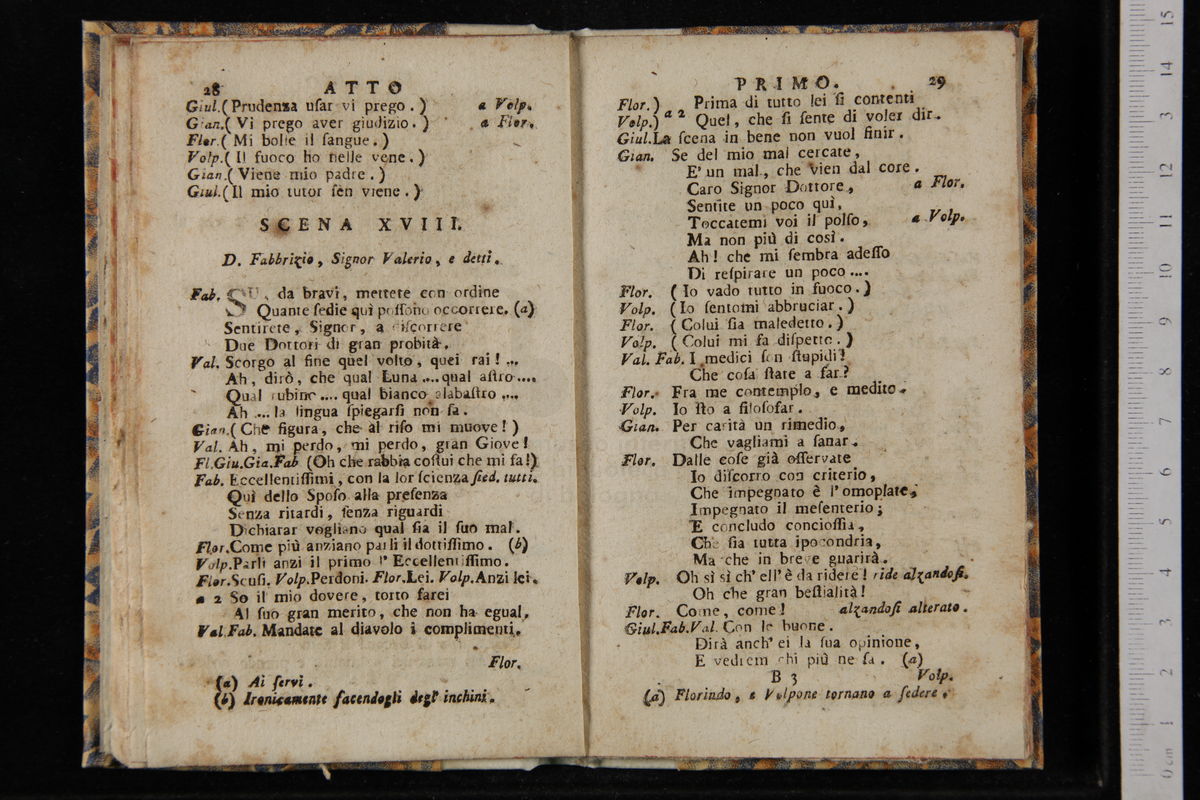 28 ATTO
Giul. (Prudenza uſar vi prego.) a Volp.
Gian. (Vi prego aver giudizio.) a Flor.
Flor. (Mi bolle il ſangue.)
Volp. (Il fuoco ho nelle vene.)
Gian. (Viene mio padre.)
Giul. (Il mio tutor ſen viene.)
SCENA XVIII.
D. Fabbrizio, Signor Valerio, e detti.
Fab. SU, da bravi, mettete con ordine
Quante ſedie quì poſſono occorrere. (a)
Sentirete, Signor, a diſcorrere
Due Dottori di gran probità.
Val. Scorgo al fine quel volto, quei rai! ...
Ah, dirò, che qual Luna .... qual aſtro ....
Qual rubino .... qual bianco alabaſtro ....
Ah .... la lingua ſpiegarſi non ſa.
Gian. (Che figura, che al riſo mi muove!)
Val. Ah, mi perdo, mi perdo, gran Giove!
Fl.Giu.Gia.Fab (Oh che rabbia coſtui che mi fa!)
Fab. Eccellentiſſimi, con la lor ſcienza ſied. tutti.
Quì dello Spoſo alla preſenza
Senza ritardi, ſenza riguardi
Dichiarar vogliano qual ſia il ſuo mal.
Flor. Come più anziano parli il dottiſſimo. (b)
Volp. Parli anzi il primo l'Eccellentiſſimo.
Flor. Scuſi. Volp. Perdoni. Flor. Lei. Volp. Anzi lei.
a 2 So il mio dovere, torto farei
Al ſuo gran merito, che non ha egual.
Val. Fab. Mandate al diavolo i complimenti.
Flor.
(a) Ai ſervi.
(b) Ironicamente facendogli degl' inchini.
PRIMO. 29
Flor.) Prima di tutto lei ſi contenti
Volp.) a 2 Quel, che ſi ſente di voler dir.
Giul. La ſcena in bene non vuol finir.
Gian. Se del mio mal cercate,
E' un mal, che vien dal core.
Caro Signor Dottore, a Flor.
Sentite un poco quì,
Toccatemi voi il polſo, a Volp.
Ma non più di così.
Ah! che mi ſembra adeſſo
Di reſpirare un poco ....
Flor. (Io vado tutto in fuoco.)
Volp. (Io ſentomi abbruciar.)
Flor. (Colui ſia maledetto.)
Volp. (Colui mi fa diſpetto.)
Val. Fab. I medici ſon ſtupidi!
Che coſa ſtate a far?
Flor. Fra me contemplo, e medito.
Volp. Io ſto a filoſofar.
Gian. Per carità un rimedio,
Che vagliami a ſanar.
Flor. Dalle coſe già oſſervate
Io diſcorro con criterio,
Che impegnato è l'omoplate,
Impegnato il meſenterio;
E concludo concioſſia,
Che ſia tutta ipocondria,
Ma che in breve guarirà.
Volp. Oh sì sì ch' ell' è da ridere! ride alzandoſi.
Oh che gran beſtialità!
Flor. Come, come! alzandoſi alterato.
Giul.Fab.Val. Con le buone.
Dirà anch' ei la ſua opinione,
E vedrem chi più ne ſa. (a)
B 3 Volp.
(a) Florindo, e Volpone tornano a ſedere.
0 cm 1 2 3 4 5 6 7 8 9 10 11 12 13 14 15